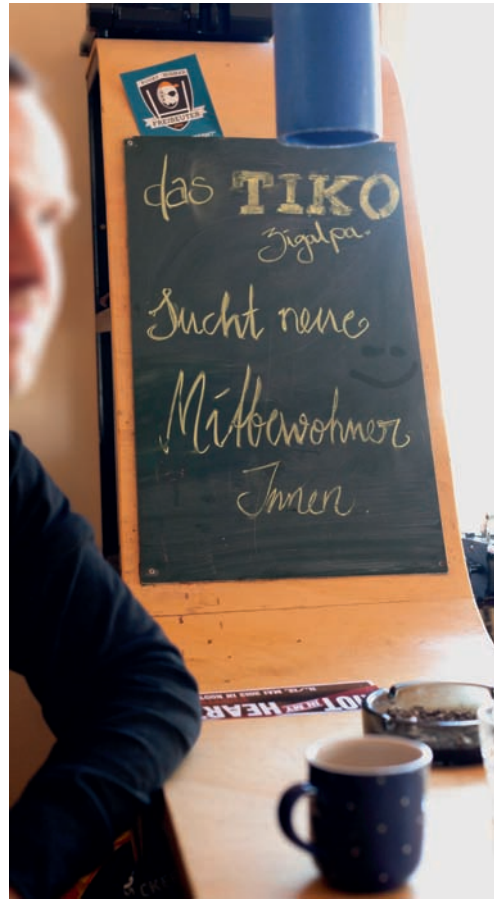 FREIBEUTER
das TIKO
zigalpa.
Sucht neue
Mitbewohner
Innen.
RIOT IN MY HEAR